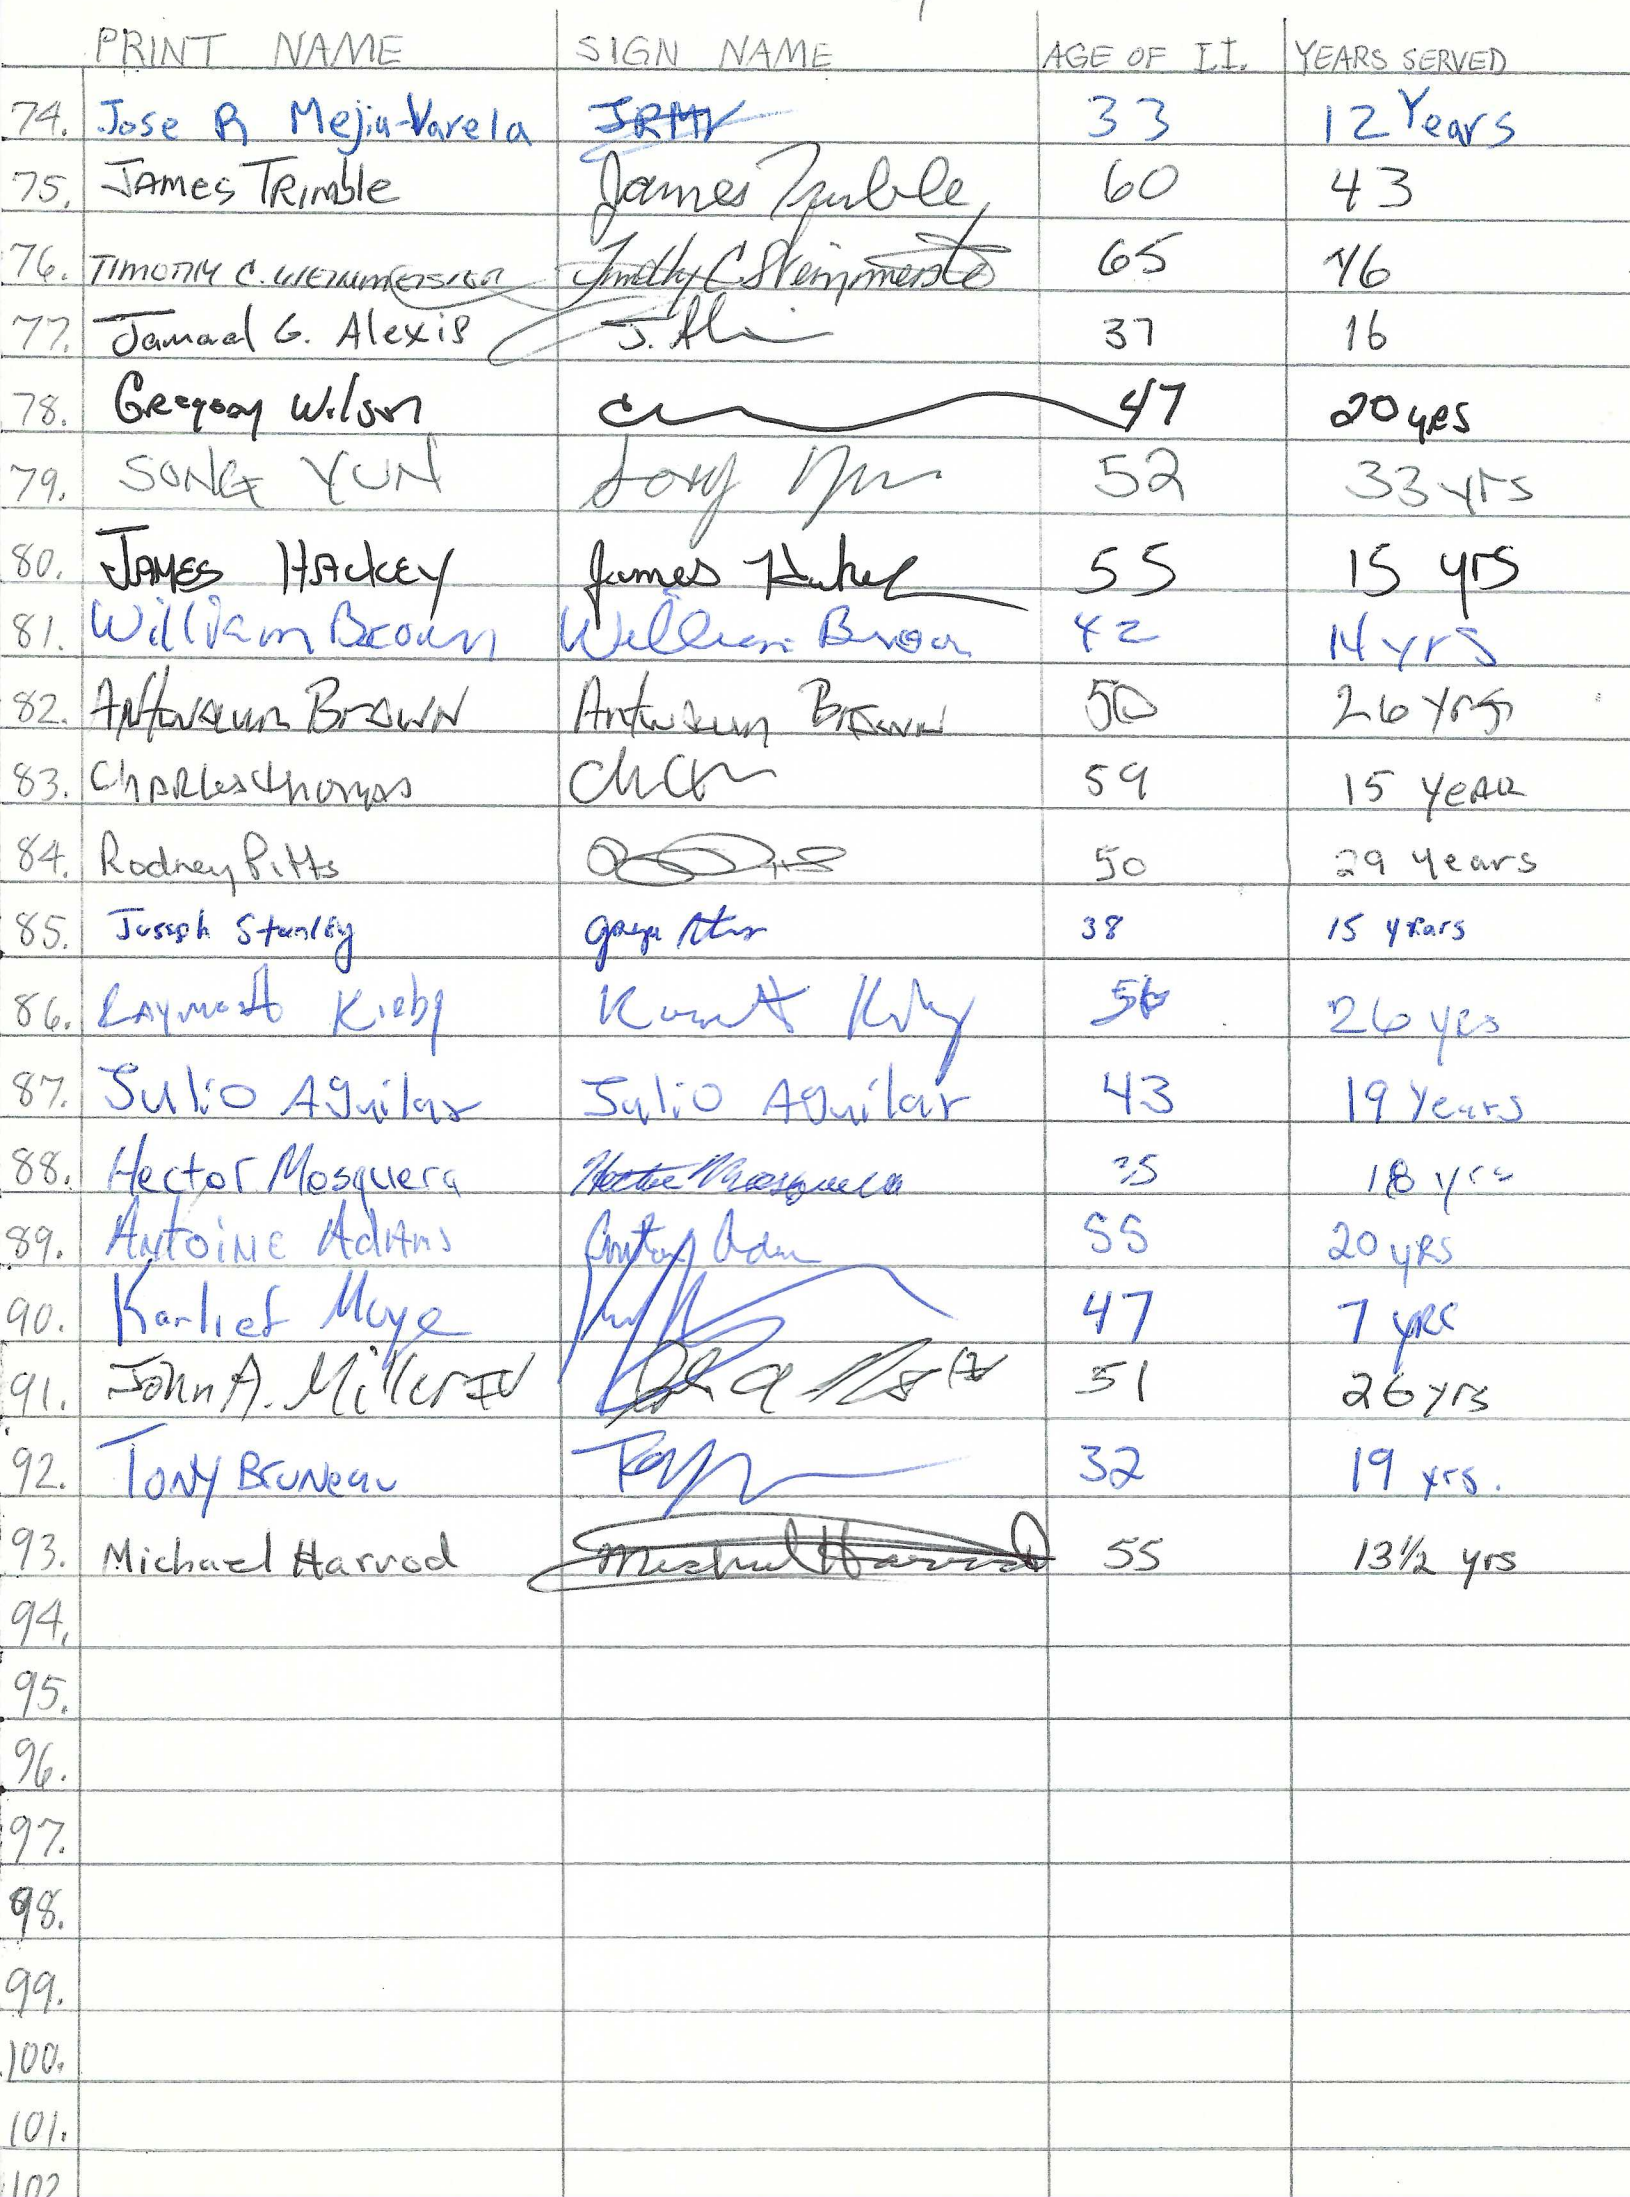 PRINT NAME SIGN NAME AGE OF I.I. YEARS SERVED
74. Jose R Mejia-Varela JRMV 33 12 Years
75. JAMES TRIMBLE James Trimble 60 43
76. TIMOTHY C. Timothy C 65 46
77. Jamaal G. Alexis J. 37 16
78. Gregory Wilson 47 20 yrs
79. SONG YUN Song Yun 52 33 yrs
80. JAMES HACKEY James 55 15 yrs
81. William Brown William Brown 42 14 yrs
82. BROWN BROWN 50 26 yrs
83. Charles Thomas 59 15 YEAR
84. Rodney Pitts 50 29 years
85. Joseph Stanley 38 15 years
86. Kirby 26 yrs
87. Julio Aguilar Julio Aguilar 43 19 Years
88. Hector Mosquera Hector Mosquera 35 18 yrs
89. Antoine Adams 55 20 yrs
90. Karlief Moye 47 7 yrs
91. John A. Miller IV 51 26 yrs
92. Tony Bruneau 32 19 yrs.
93. Michael Harrod Michael Harrod 55 13 1/2 yrs
94.
95.
96.
97.
98.
99.
100.
101.
102